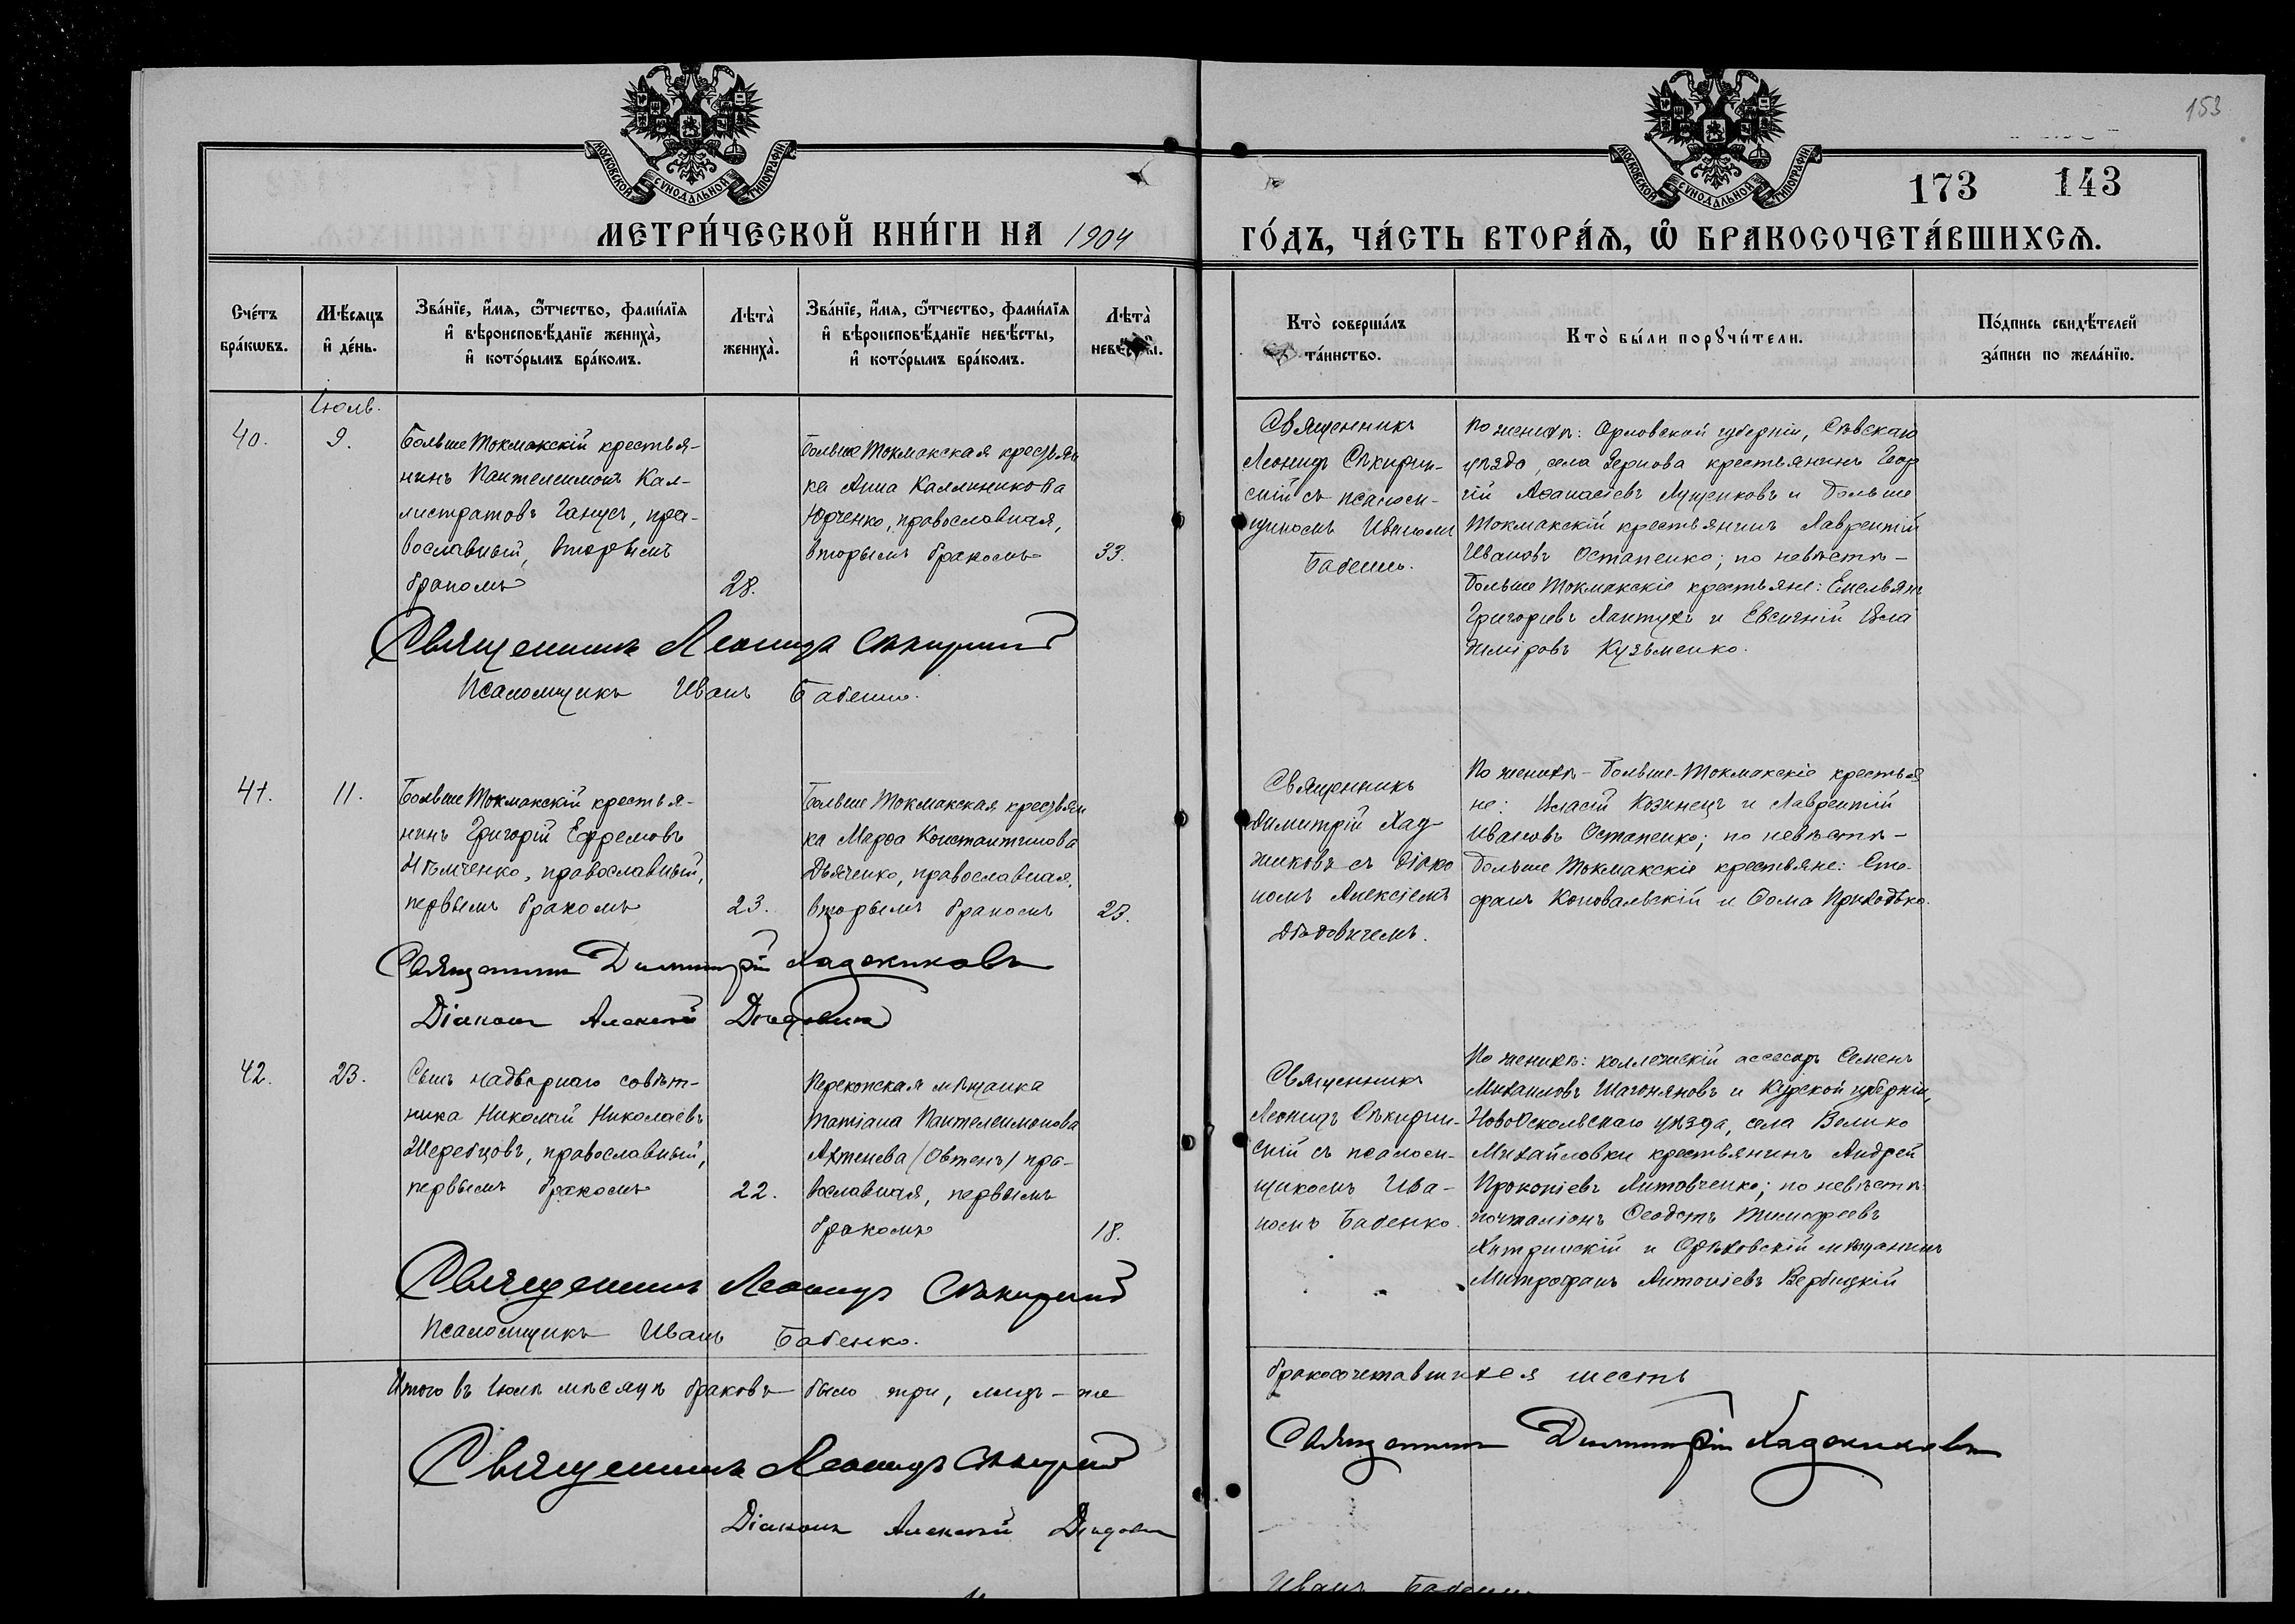 153
МОСКОВСКОЙ СУНОДАЛЬНОЙ ТИПОГРАФІИ
МОСКОВСКОЙ СУНОДАЛЬНОЙ ТИПОГРАФІИ
173 143
МЕТРИ́ЧЕСКОЙ КНИ́ГИ НА 1904
ГО́ДЪ, ЧА́СТЬ ВТОРА́Ѧ, Ѡ҆ БРАКОСОЧЕТА́ВШИХСѦ.
Сче́тъ бра́кѡвъ.
Мѣ́сѧцъ и҆ де́нь.
Зва́нїе, и҆́мѧ, ѻ҆́тчество, фами́лїѧ и҆ вѣроисповѣ́данїе жениха̀, и҆ кото́рымъ бра́комъ.
Лѣта̀ жениха̀.
Зва́нїе, и҆́мѧ, ѻ҆́тчество, фами́лїѧ и҆ вѣроисповѣ́данїе невѣ́сты, и҆ кото́рымъ бра́комъ.
Лѣта̀ невѣ́сты.
Кто̀ соверша́лъ та́инство.
Кто̀ бы́ли порꙋчи́тели.
По́дпись свидѣ́телей за́писи по жела́нїю.
Іюль.
40.
9.
БольшеТокмакскій крестья-
нинъ Пантелеимонъ Кал-
листратовъ Ганусъ, пра-
вославный, вторымъ
бракомъ
28.
БольшеТокмакская крестьян
ка Анна Каллиникова
Юрченко, православная,
вторымъ бракомъ
33.
Священникъ
Леонидъ Сѣкирин-
скій съ псалом-
щикомъ Иваномъ
Бабенко.
По женихѣ: Орловской губерніи, Сѣвскаго
уѣзда, села Зернова крестьянинъ Геор
гій Аѳанасіевъ Лущенковъ и больше
Токмакскій крестьянинъ Лаврентій
Ивановъ Остапенко; по невѣстѣ –
больше Токмакскіе крестьяне: Емельянъ
Григорьевъ Лантухъ и Евсигній Вла
диміровъ Кузьменко.
Священникъ Леонидъ Сѣкиринскій
Псаломщикъ Иванъ Бабенко.
41.
11.
БольшеТокмакскій крестья-
нинъ Григорій Ефремовъ
Нѣмченко, православный,
первымъ бракомъ
23.
Больше Токмакская крестьян
ка Марѳа Константинова
Дьяченко, православная,
вторымъ бракомъ
23.
Священникъ
Димитрій Хад-
жиковъ съ діако
номъ Алексіемъ
Діадовичемъ.
По женихѣ – больше-Токмакскіе крестья
не: Власій Козинецъ и Лаврентій
Ивановъ Остапенко; по невѣстѣ –
больше Токмакскіе крестьяне: Сте-
фанъ Коновальскій и Ѳома Приходько.
Священникъ Димитрій Хаджиковъ
Діаконъ Алексій Діадовичъ
42.
23.
Сынъ надворнаго совѣт-
ника Николай Николаевъ
Жеребцовъ, православный,
первымъ бракомъ
22.
Перекопская мѣщанка
Татіана Пантелеимонова
Ахтенева /Овтенъ/ пра-
вославная, первымъ
бракомъ
18.
Священникъ
Леонидъ Сѣкирин-
скій съ псалом-
щикомъ Ива-
номъ Бабенко.
По женихѣ: коллежскій ассесоръ Семенъ
Михаиловъ Шагоняновъ и Курской губерніи,
НовоОскольскаго уѣзда, села Велико
Михайловки крестьянинъ Андрей
Прокопіевъ Литовченко; по невѣстѣ:
почталіонъ Ѳеодотъ Тимоѳеевъ
Хитринскій и Орѣховскій мѣщанинъ
Митрофанъ Антоніевъ Вербицкій
Священникъ Леонидъ Сѣкиринскій
Псаломщикъ Иванъ Бабенко.
Итого въ Іюлѣ мѣсяцѣ браковъ было три, лицъ – же
бракосочетавшихся шесть
Священникъ Леонидъ Сѣкиринскій
Священникъ Димитрій Хаджиковъ
Діаконъ Алексій Діадовичъ
Иванъ Бабенко